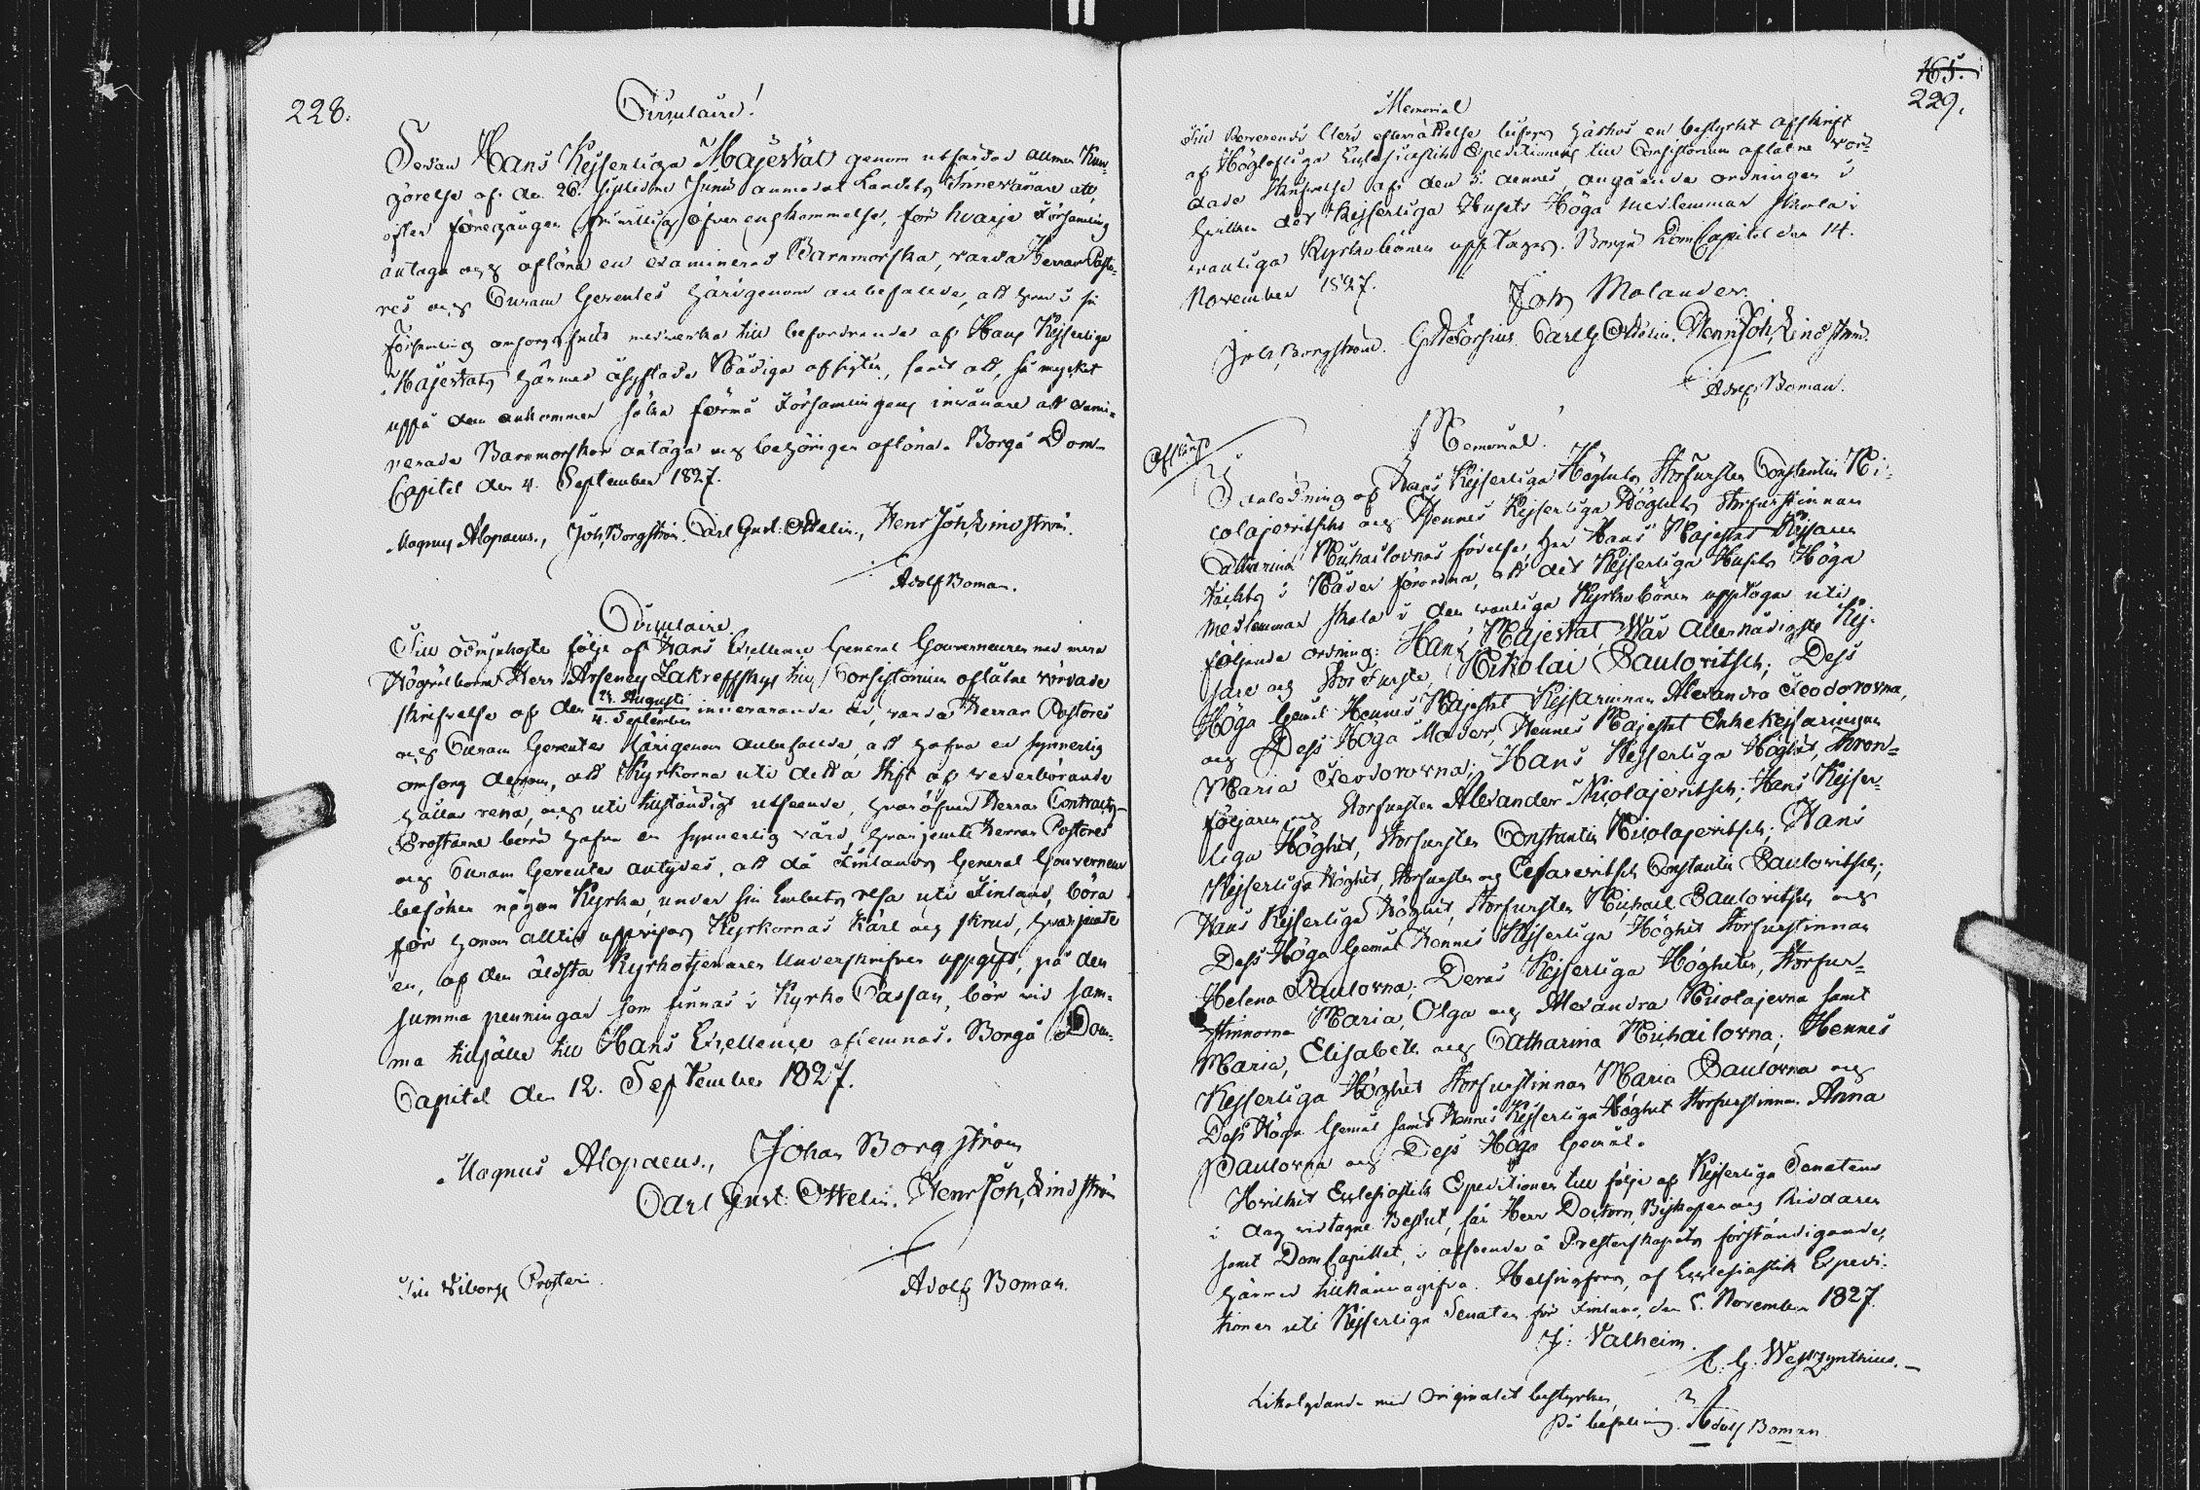 228.
Circulaire!
Sedan Hans Kejserliga Majestät genom utfärdad allmän Kun-
görelse af den 26. sistledne Junii anmodat Landets Innevånare att,
efter föregången frivillig öfverenskommelse, för hvarje Församling
antaga och aflöna en examinerad Barnmorska, varda Herrar Pasto-
res och Curam Gerentes härigenom anbefallde, att hvar i sin
Församling omsorgsfullt medverka till befordrande af Hans Kejserliga
Majestäts härmed åsyftade Nådiga afsigter, samt att, så mycket
uppå dem ankommer söka förmå Församlingens invånare att exami-
nerade Barnmorskor antaga och behörigen aflöna. Borgå Dom-
Capitel den 4. September 1827.
Magnus Alopaeus., Joh. Borgström. Carl Gust: Ottelin., Henr Joh, Lindström.
Adolf Boman.
Circulaire
Till ödmjukaste följe af Hans Excellence General Gouverneuren med mera
Högvälborne Herr Arseney Zakreffskys till Consistorium aflåtne vördade
skrifvelse af den 23. Augusti / 4. September innevarande år, varda Herrar Pastores
och Curam Gerentes härigenom anbefallde, att hafva en synnerlig
omsorg derom, att Kyrkorna uti detta Stift af vederbörande
hållas rena, och uti tillständigt utseende, hvaröfver Herrar Contracts-
Prostarne böra hafva en synnerlig vård, hvarjemte Herrar Pastores
och Curam Gerentes antydes, att då Finlands General Gouverneur
besöker någon Kyrka, under sin Embets resa uti Finland, böra
för honom alltid uppvisas Kyrkornas Kärl och skrud, hvarjemte
en, af den äldsta Kyrkotjenaren Underskrifven uppgift, på den
summa penningar som finnas i Kyrko Cassan, bör vid sam-
ma tillfälle till Hans Excellence aflemnas. Borgå Dom-
Capitel den 12. September 1827.
Magnus Alopaeus., Johan Borgström
Carl Gust: Ottelin. Henr Joh, Lindström
Adolf Boman.
Till Wiborgs Prosteri.
165.
229.
Memorial
Till Reverendi Cleri efterrättelse bifogas härhos en bestyrkt afskrift
af Högloflige Ecclesiastik Expeditionens till Consistorium aflåtne vör-
dade skrifvelse af den 5. dennes angående ordningen i
hvilken det Kejserliga Husets Höga medlemmar skola i
vanliga Kyrkobönen upptagas. Borgå DomCapitel den 14.
November 1827.
Joh, Molander.
Joh, Borgström. Carl G Ottelin. Henr Joh, Lindström.
Adolf Boman.
Afskrift
Memorial.
I anledning af Hans Kejserliga Höghets Storfursten Constantin Ni-
colajevitschs och Hennes Kejserliga Höghets Storfurstinnan
Catharina Michailovnas födelse, har Hans Majestät Kejsaren
täckts i Nåder förordna, att det Kejserliga Husets Höga
medlemmar skola i den vanliga Kyrkobönen upptagas uti
följande ordning: Hans Majestät, Wår Allernådigste Kej-
sare och StorFurste, Nikolai Paulovitsch; Dess
Höga Gemål Hennes Majestät Kejsarinnan Alexandra Feodorovna,
och Dess Höga Moder, Hennes Majestät Enkekejsarinnan
Maria Feodorovna; Hans Kejserliga Höghet, Thron-
följaren och Storfursten Alexander Nicolajevitsch; Hans Kejser-
liga Höghet, Storfursten Constantin Nicolajevitsch; Hans
Kejserliga Höghet, Storfursten och Cesarevitsch Constantin Paulovitsch;
Hans Kejserliga Höghet, Storfursten Michail Paulovitsch och
Dess Höga Gemål Hennes Kejserliga Höghet Storfurstinnan
Helena Paulovna; Deras Kejserliga Högheter, Storfur-
stinnorna Maria, Olga och Alexandra Nicolajevna samt
Maria, Elisabeth och Catharina Michailovna; Hennes
Kejserliga Höghet Storfurstinnan Maria Paulovna och
Dess Höga Gemål samt Hennes Kejserliga Höghet Storfurstinnan Anna
Paulovna och Dess Höga Gemål.
Hvilket Ecclesiastik Expeditionen till följe af Kejserliga Senatens
i dag vidtagne Beslut, får Herr Doctorn, Biskopen och Riddaren
samt DomCapitlet, i afseende å Presterskapets förständigande,
härmed tillkännagifva. Helsingfors, af Ecclesiastik Expedi-
tionen uti Kejserliga Senaten för Finland, den 5. November 1827.
J: Valheim.
C. G. Westzynthius.
Likalydande med Originalet bestyrker,
På befallning. Adolf Boman